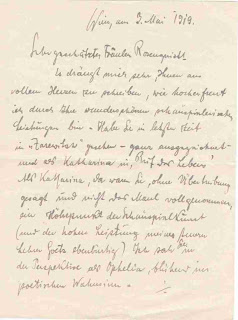 Wien, am 3. Mai 1919.
Sehr geschätztes Fräulein Rosenquist
Es drängt mich sehr Ihnen aus
vollem Herzen zu schreiben, wie hocherfreut
ich durch Ihre wunderschönen schauspielerischen
Leistungen bin - Habe Sie in letzter Zeit
in " gesehen - ganz ausgezeichnet -
und als Katharina in, Ruf des Lebens"
Als Katharina, da waren Sie, ohne Übertreibung
gesagt und nicht das Maul vollgenommen,
ein Höhepunkt der Schauspielkunst
(und der hohen Leistung meines
lieben Goetz ebenbürtig) Ich sah Sie
in der Perspektive als Ophelia, blühend im
poetischen Wahnsinn. -